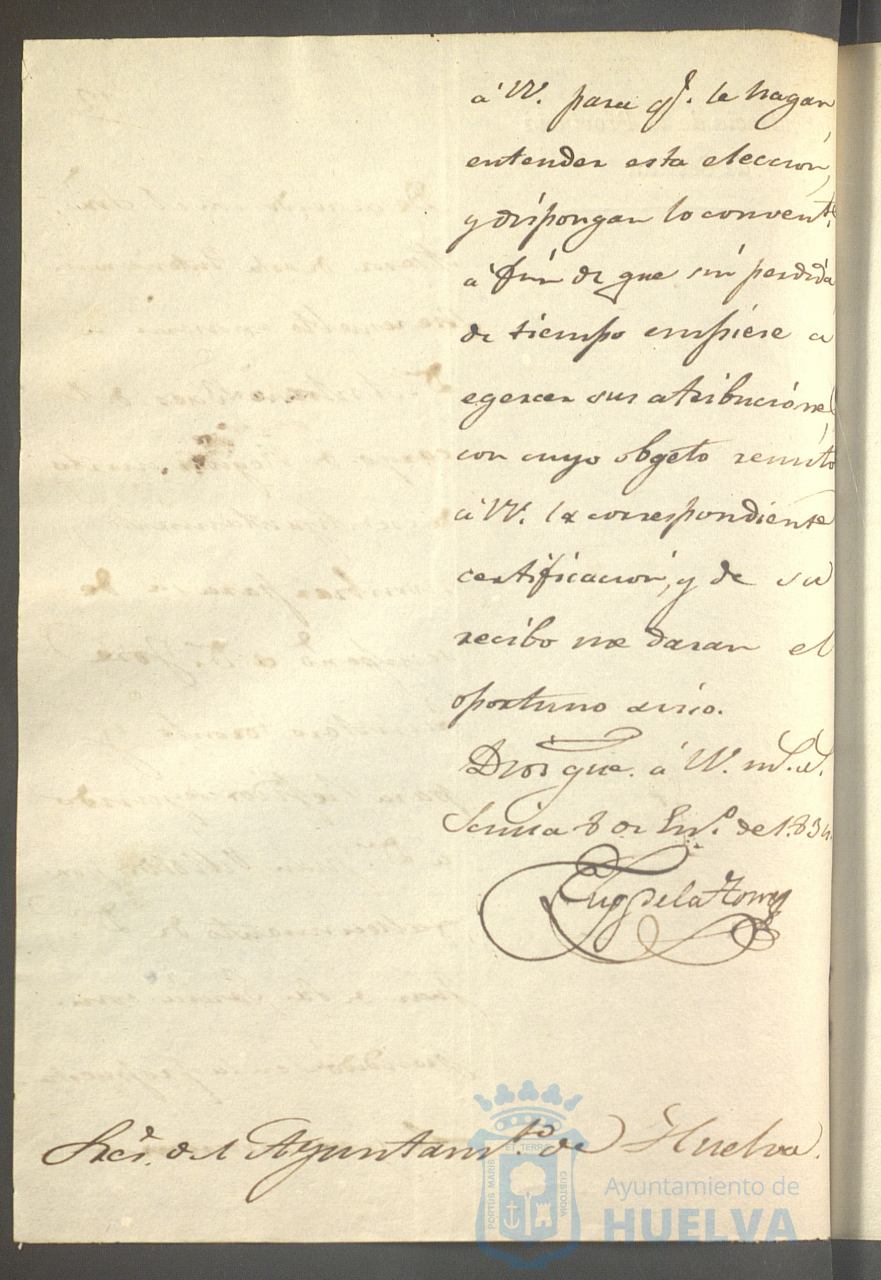 á VV. para qe. le hagan
entender esta eleccion,
y dispongan lo convente.
á fin de que sin perdida
de tiempo empiece a
egercer sus atribuciones,
con cuyo obgeto remito
á VV. la correspondiente
certificacion, y de su
recibo me daran el
oportuno aviso.
Dios gue. á VV. ms. as.
8 de En.o de 1.834.
Eug de la Torre
Sres. del Ayuntamto. de Huelva.
PORTUS MARIS ET TERRE CUSTODIA
Ayuntamiento de
HUELVA